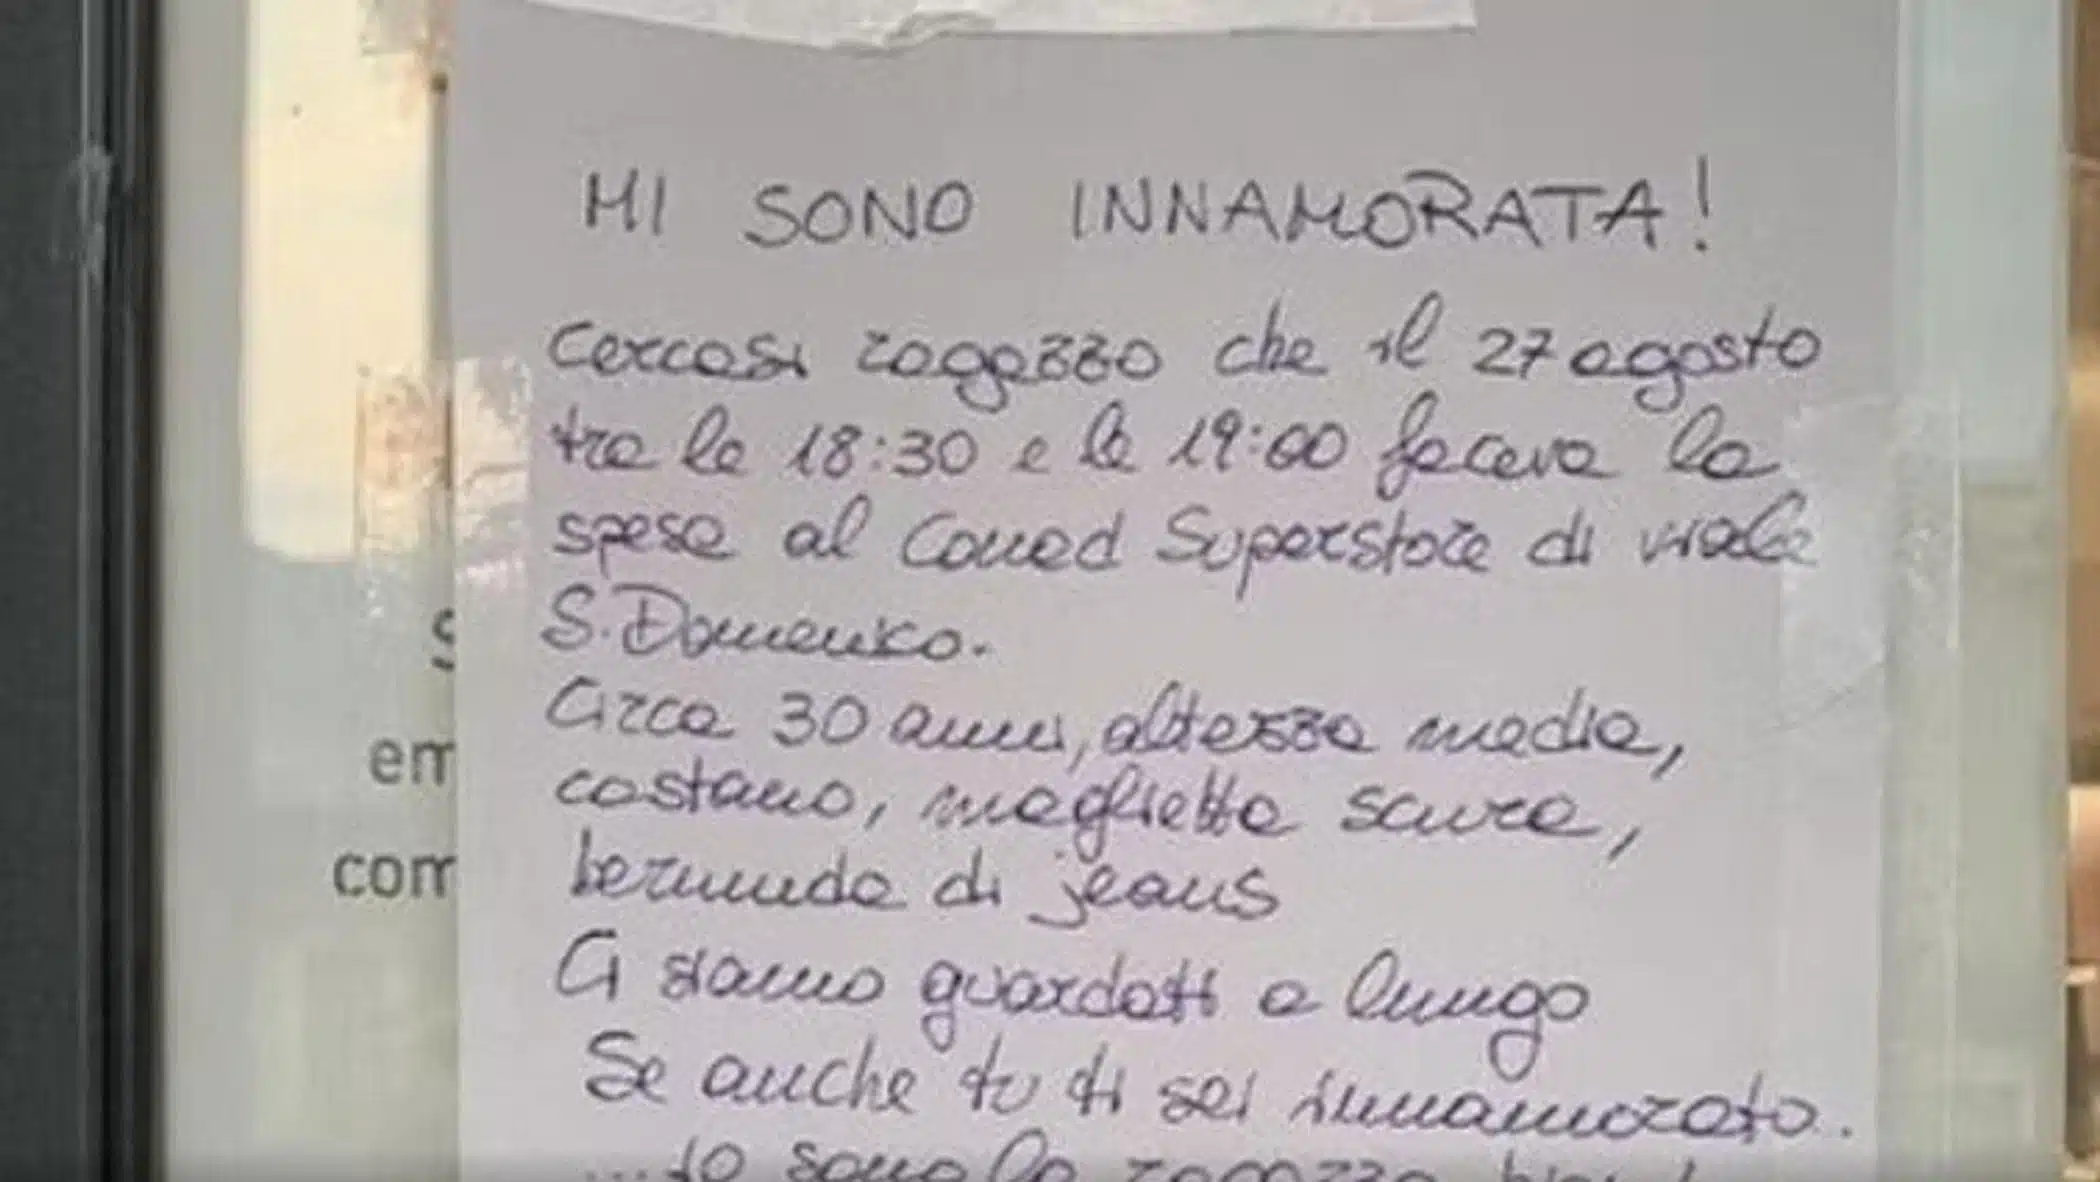 MI SONO INNAMORATA!
Cercasi ragazzo che il 27 agosto
tra le 18:30 e le 19:00 faceva la
spesa al Conad Superstore di viale
S. Domenico.
Circa 30 anni, altezza media,
castano, maglietta scura,
bermuda di jeans
Ci siamo guardati a lungo
Se anche tu ti sei innamorato.
... io sono la ragazza
em
com